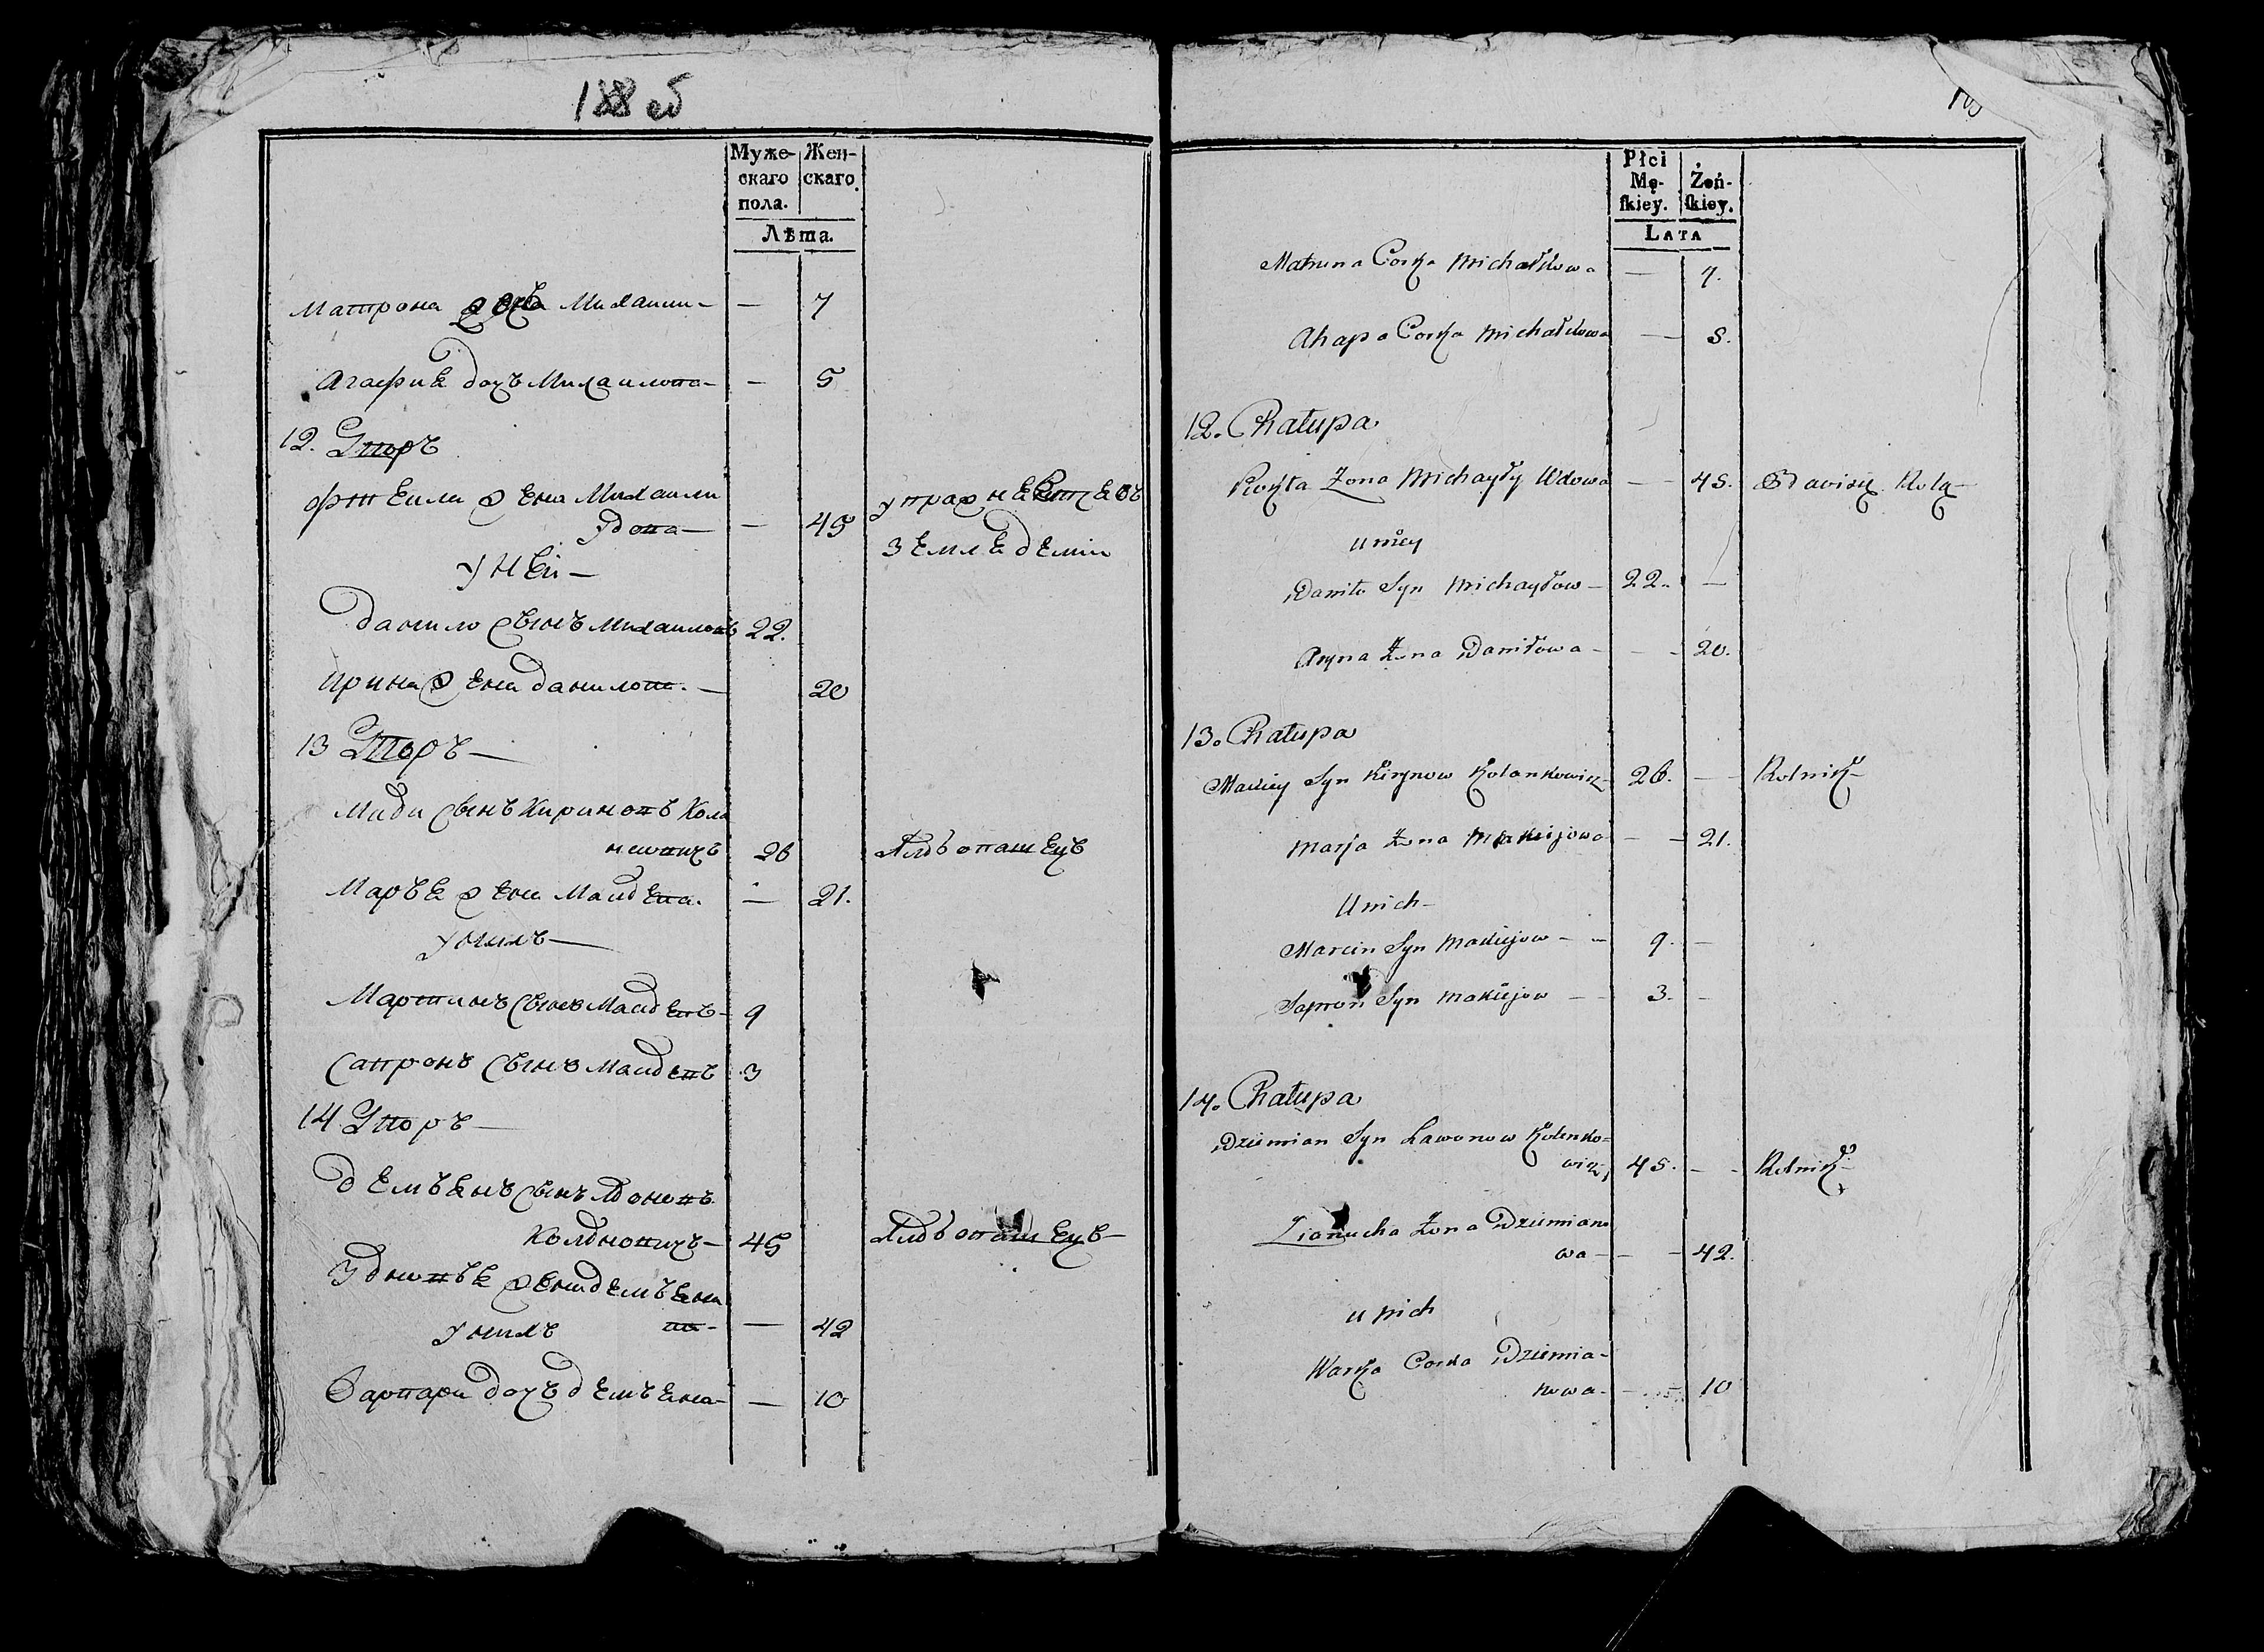 188 об
Муже-
скаго
пола.
Жен-
скаго.
Лѣта.
Матрона дочъ Михаили — — 7
Агафия дочъ Михаилова — — 5
12. Дворъ
жена Михаили
Удова — — 45
упражняется въ
земледелии
У ней —
Данило сынъ Михаиловъ 22.
Ирина жена Данилова. — 20
13 Дворъ —
сынъ Кириновъ Кола
новичъ 26 хлѣбопашецъ
Маръя жена Мацеева. — 21.
У нихъ —
Мартинъ сынъ Мацеевъ — 9
Сапронъ сынъ Мацеевъ 3
14 Дворъ —
Демъянъ сынъ
45 хлѣбопашецъ —
жена Демъяно
ва — — 42
У нихъ
Варвара дочъ Демъяна — — 10
Płci
Mę-
ſkiey.
Żeń-
ſkiey.
LATA
Matruna Corka Michałowa — 7.
Ahapa Corka Michałowa — 5.
12. Chałupa
Żona Michayły Wdowa — 45. Bawisię Rolą —
u niey
Daniło Syn Michayłow — 22. —
Aryna Żona Daniłowa — — 20.
13. Chałupa
Maciey Syn Kirynow Kolankowicz 26. — Rolnik —
Marja Żona Maciejowa — — 21.
U nich —
Marcin Syn Maciejow — — 9. —
Sapron Syn Maciejow — — 3. —
14. Chałupa
Dziemian Syn Lawonow Kolenko=
wicz 45. — — Rolnik —
Zianucha Żona Dziemiano
wa — — — 42.
u nich
Warka Corka Dziemia-
nowa — — 10